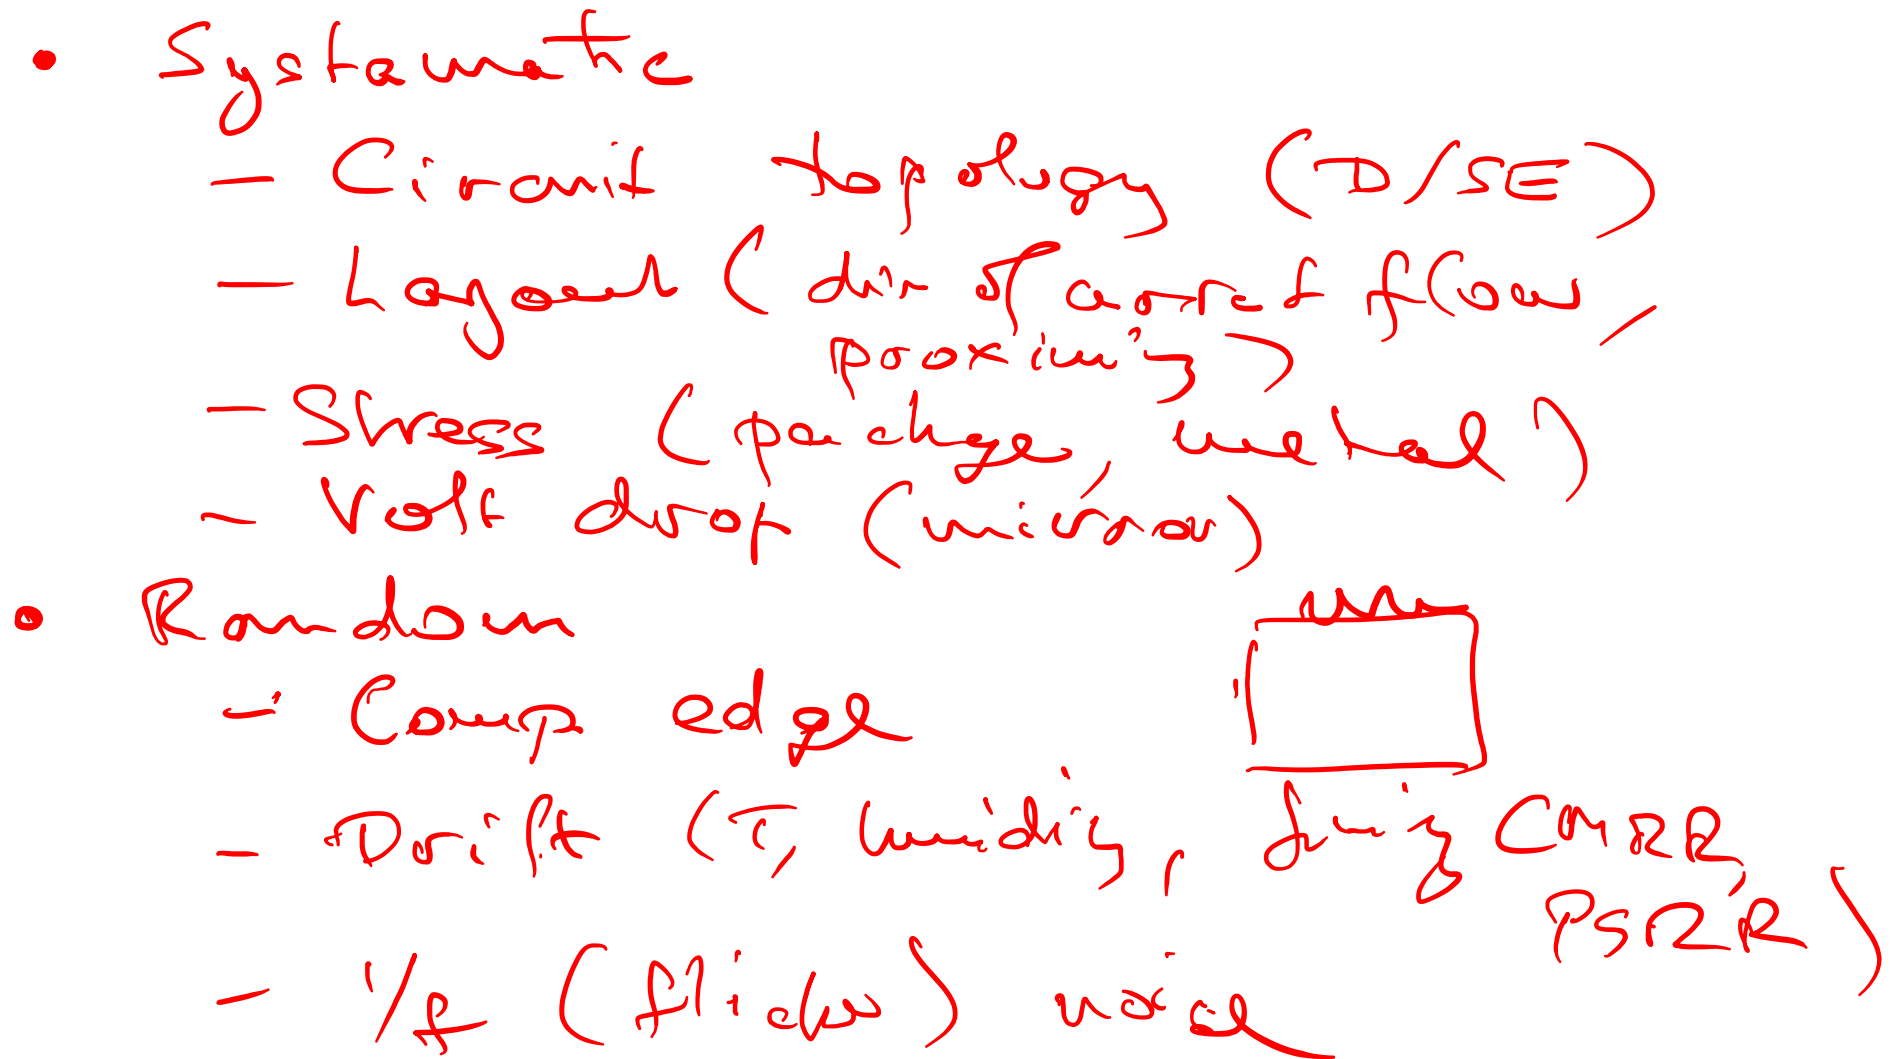 • Systematic
- Circuit topology (D/SE)
- Layout (dir of current flow,
proximity)
- Stress (package, metal)
- Volt drop (mirror)
• Random
- Comp edge
- Drift (T, humidity, CMRR,
PSRR)
- 1/f (flicker) noise